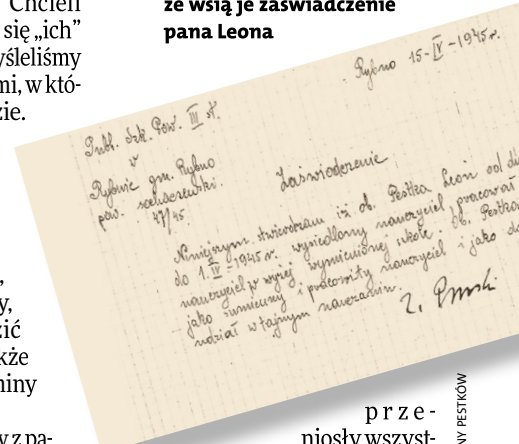 Chcieli
się „ich”
yśleliśmy
mi, w któ-
zie.
ze wsią je zaświadczenie
pana Leona
Rybno 15-IV-1945r.
Publ. Szk. Pow. III st.
w
Rybnie gm. Rybno
pow. sochaczewski.
47/45
Zaświadczenie
Niniejszym stwierdzam iż ob. Pestka Leon od
do 1.IV-1945r. wysiedlony nauczyciel pracował
nauczyciel w wyżej wymienionej szkole. Ob. Pestka
jako sumienny i pracowity nauczyciel i jako
udział w tajnym nauczaniu.
y,
zić
kże
miny
y z pa-
prze-
niosły wszyst-
NY PESTKÓW